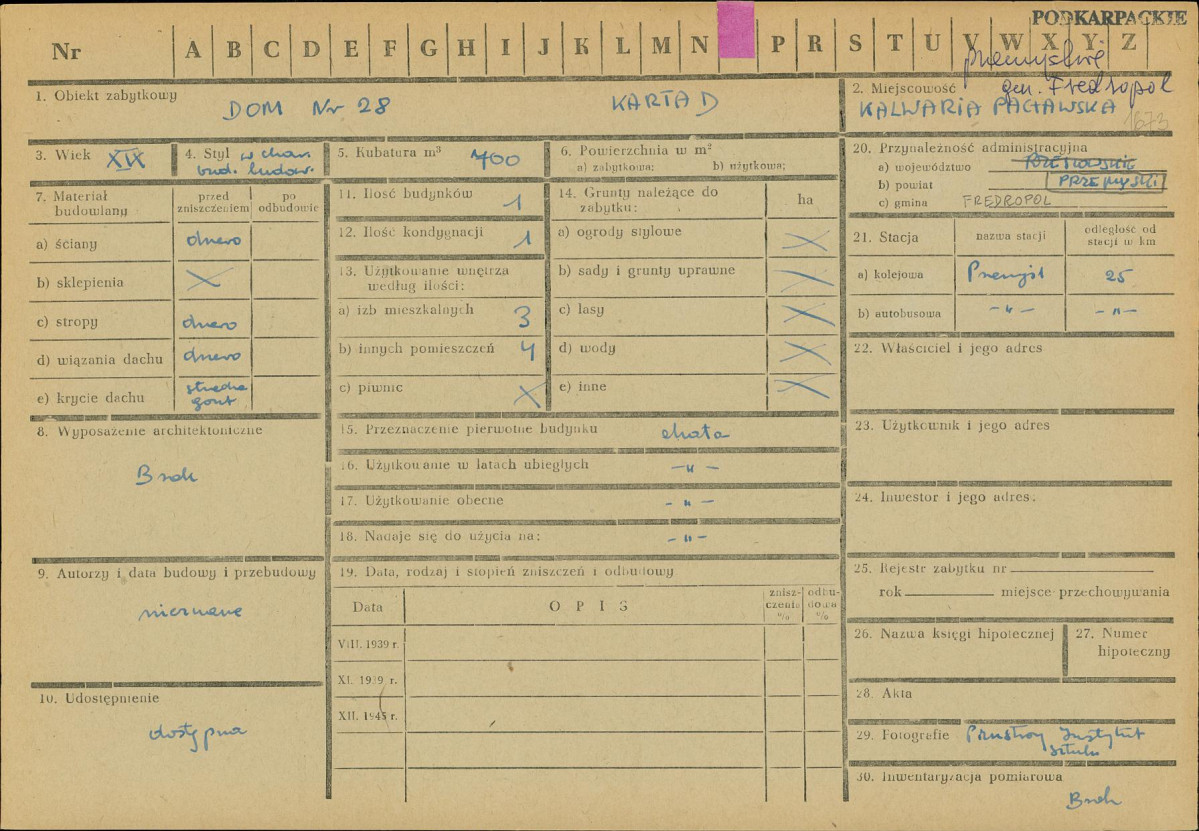 PODKARPACKIE
Nr A B C D E F G H I J K L M N P R S T U V W X Y Z
przemyskie
gm. Fredropol
1. Obiekt zabytkowy DOM Nr 28 KARTA D
2. Miejscowość KALWARIA PACŁAWSKA
1673
3. Wiek XIX
4. Styl w char. bud. ludow.
5. Kubatura m³ 400
6. Powierzchnia w m²
a) zabytkowa: b) użytkowa:
7. Materiał budowlany przed zniszczeniem po odbudowie
a) ściany drewo
b) sklepienia X
c) stropy drewo
d) wiązania dachu drewo
e) krycie dachu strzecha gont
8. Wyposażenie architektoniczne
Brak
9. Autorzy i data budowy i przebudowy
nieznane
10. Udostępnienie
dostępna
11. Ilość budynków 1
12. Ilość kondygnacji 1
13. Użytkowanie wnętrza według ilości:
a) izb mieszkalnych 3
b) innych pomieszczeń 4
c) piwnic X
14. Grunty należące do zabytku: ha
a) ogrody stylowe X
b) sady i grunty uprawne X
c) lasy X
d) wody X
e) inne X
15. Przeznaczenie pierwotne budynku chata
16. Użytkowanie w latach ubiegłych -"-
17. Użytkowanie obecne -"-
18. Nadaje się do użycia na: -"-
19. Data, rodzaj i stopień zniszczeń i odbudowy
Data OPIS zniszczenia % odbudowa %
VIII. 1939 r.
XI. 1939 r.
XII. 1945 r.
20. Przynależność administracyjna
a) województwo RZESZOWSKIE
b) powiat PRZEMYSKI
c) gmina FREDROPOL
21. Stacja nazwa stacji odległość od stacji w km
a) kolejowa Przemyśl 25
b) autobusowa -"- -"-
22. Właściciel i jego adres
23. Użytkownik i jego adres
24. Inwestor i jego adres.
25. Rejestr zabytku nr
rok miejsce przechowywania
26. Nazwa księgi hipotecznej
27. Numer hipoteczny
28. Akta
29. Fotografie Państwowy Instytut Sztuki
30. Inwentaryzacja pomiarowa
Brak